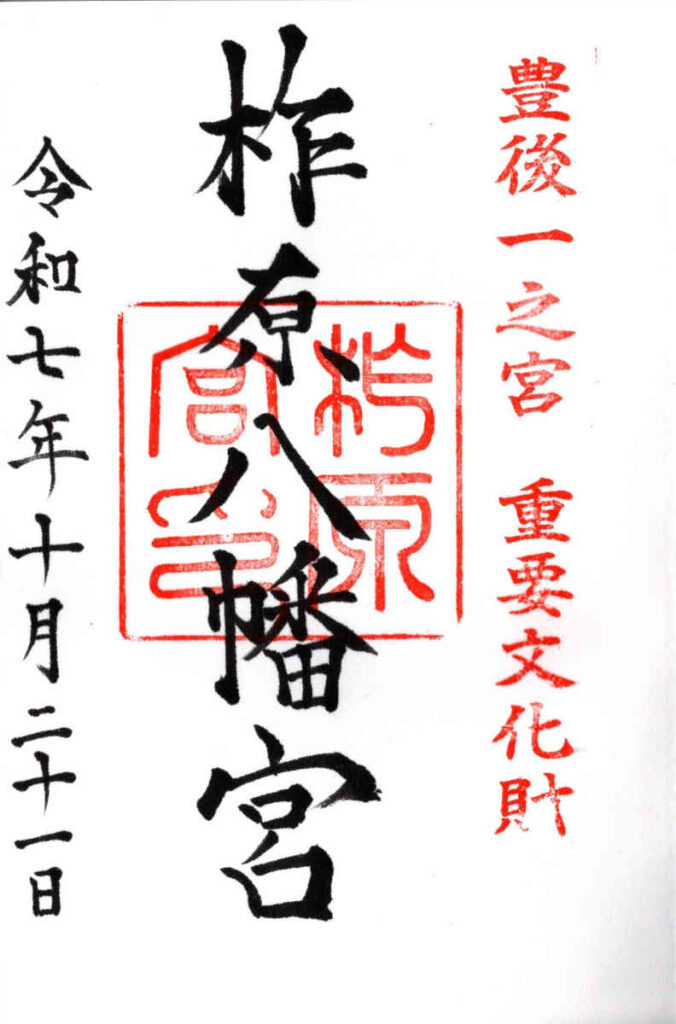 豊後一之宮 重要文化財
柞原八幡宮
柞原
宮印
令和七年十月二十一日